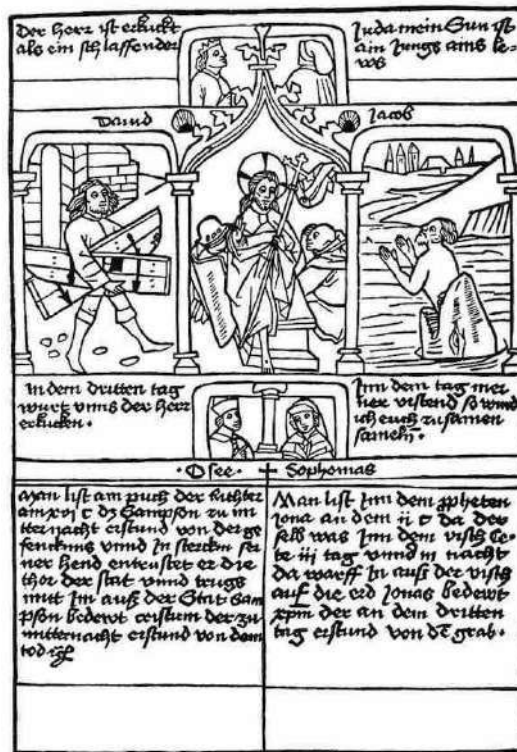 Der herr ist erkuckt
als ein schlaffender
Juda mein Sun ist
ain Jungs ains le-
ws
Dauid
Jacob
In dem dritten tag
wurt vnns der herr
erkucken.
Inn dem tag mei
ner vrstend so wird
ich euch zu samen
sameln.
Osee
Sophomas
Man list am puch der Richter
am xvi c dz Sampson zu mi
tternacht erstund von der ge
fencknus vnnd In sterckin sei
ner hend entrustet er die
thor der stat vnnd trugs
mitt Im auß der Stat Sam
pson bedewt cristum der zu
mitternacht erstund von dem
tod
Man list Inn dem ppheten
Jona an dem ii c da der
selb was Inn dem visch Ce-
te iii tag vnnd iii nacht
da warff In auß der visch
auf die erd Jonas bedewt
xpm der an dem dritten
tag erstund von de grab.